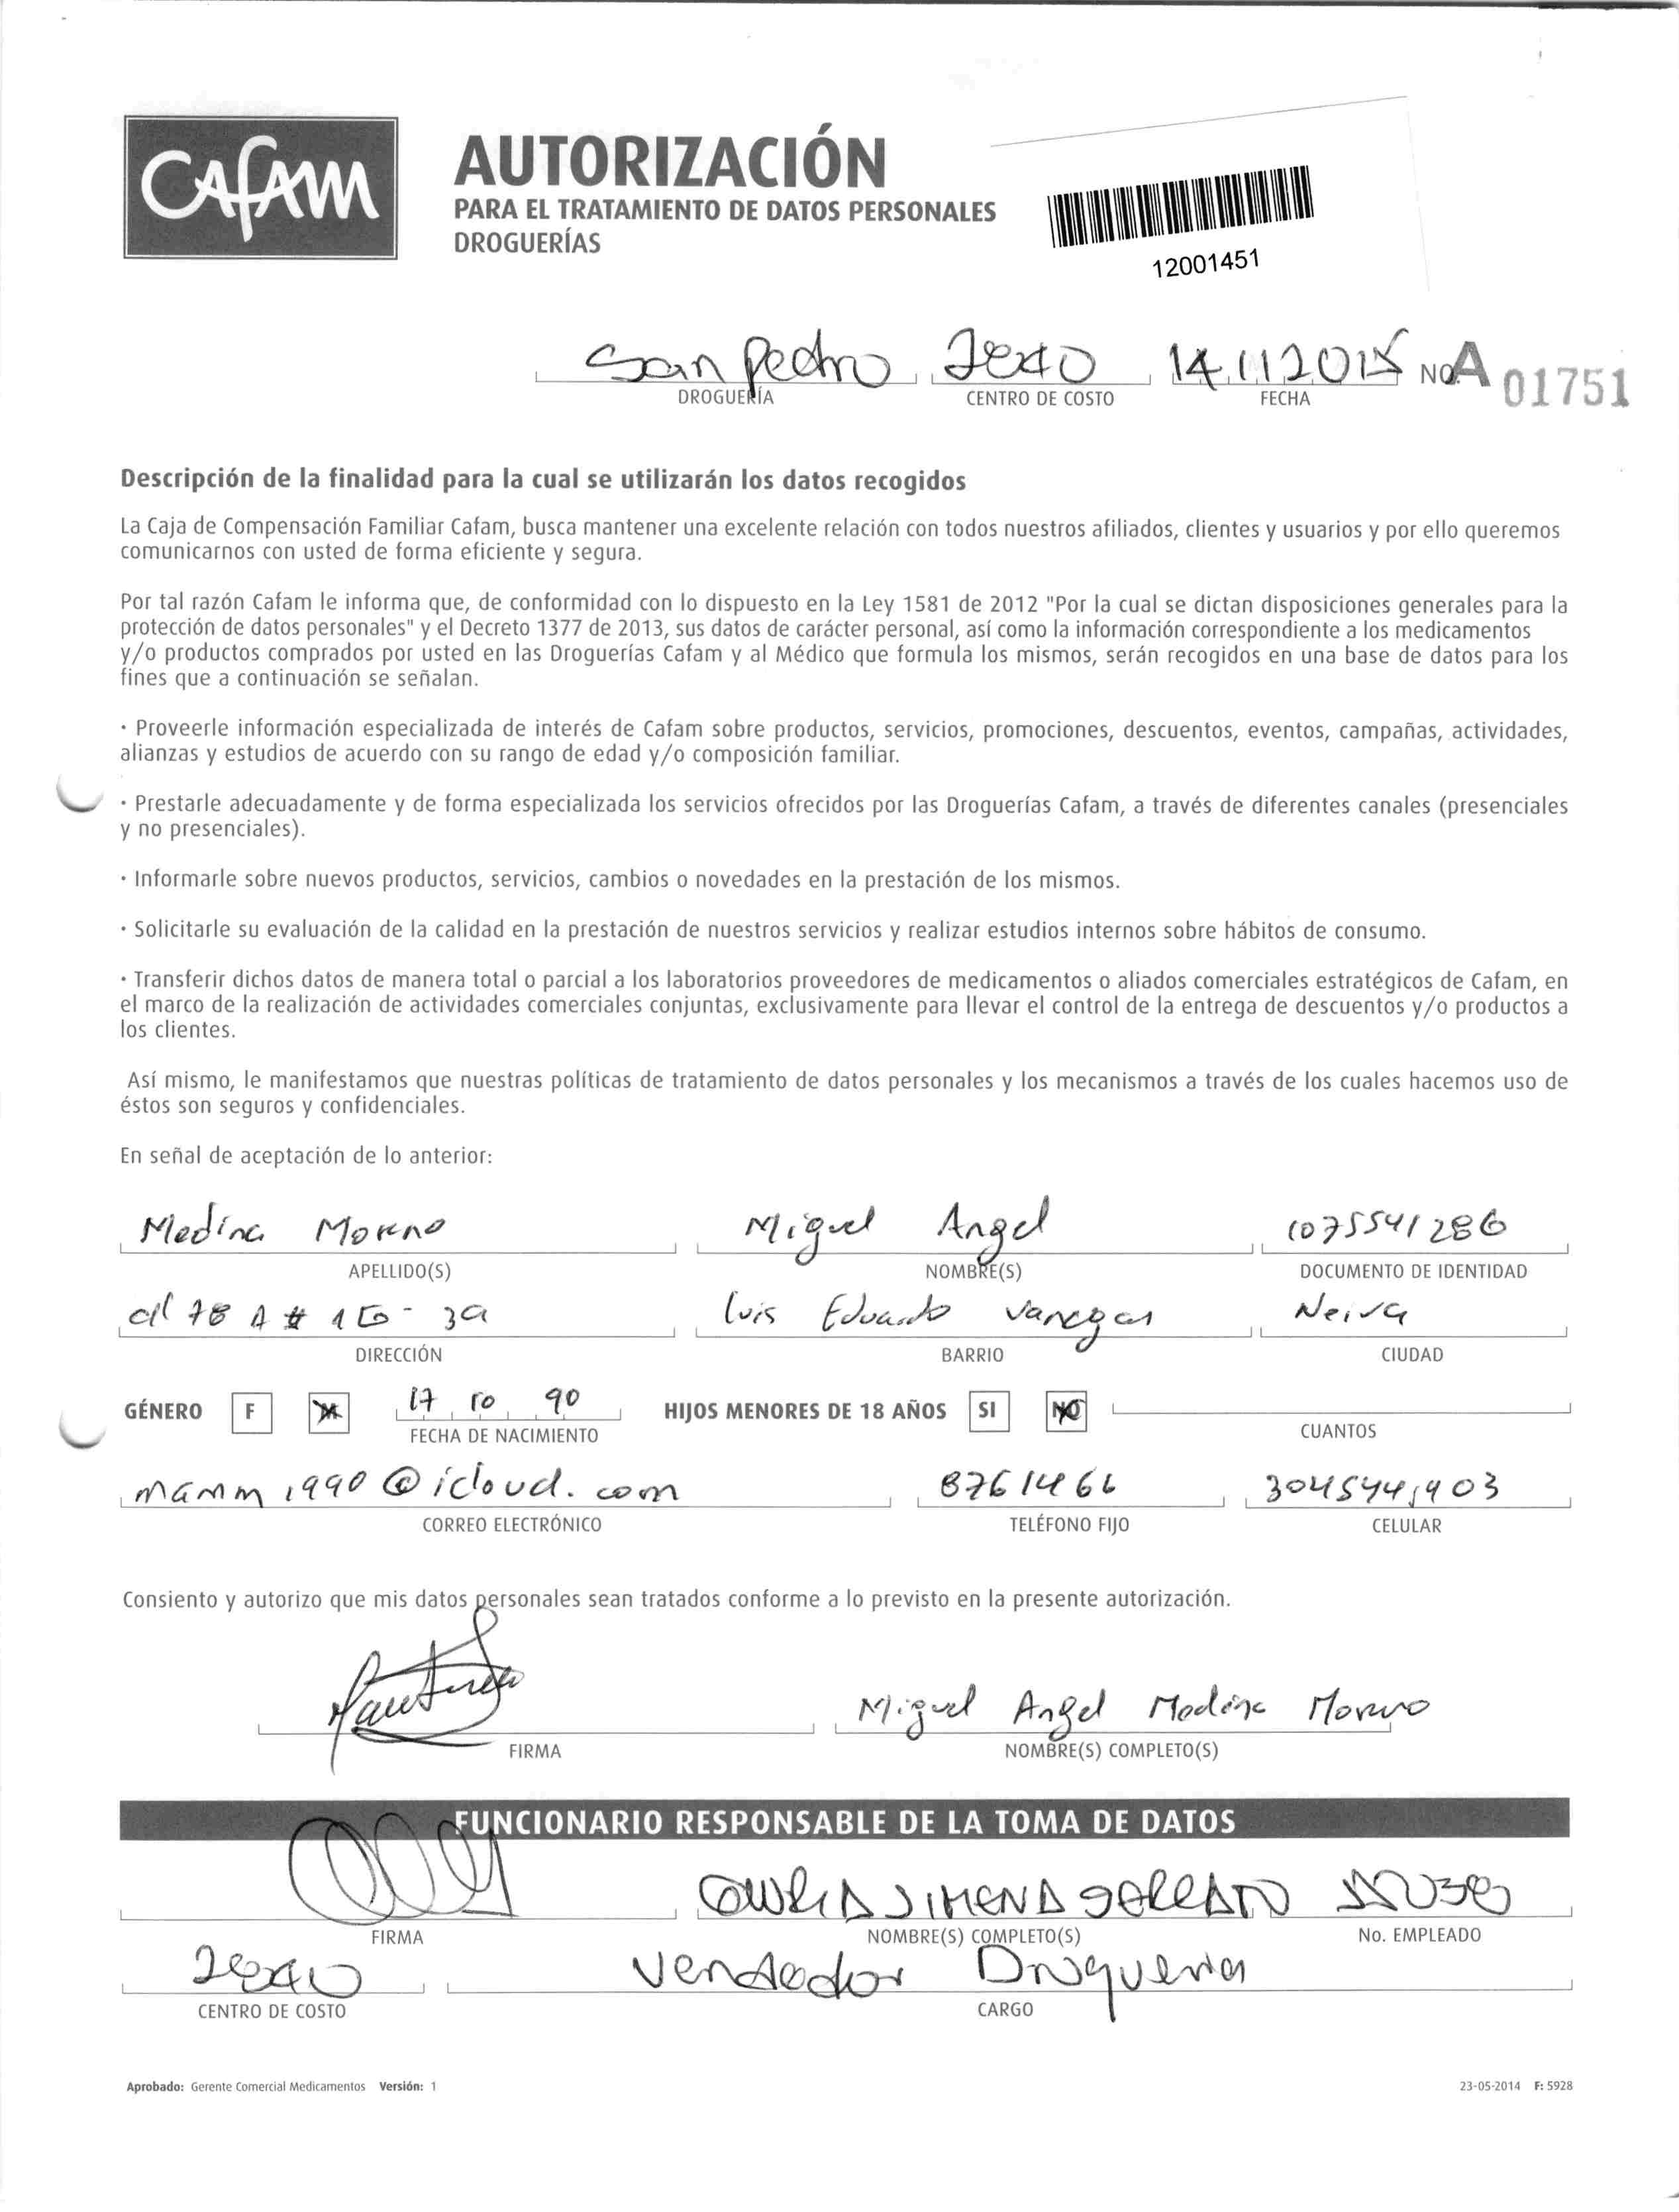 CAFAM
AUTORIZACIÓN
PARA EL TRATAMIENTO DE DATOS PERSONALES
DROGUERÍAS
12001451
San Pedro 14 11 2015 No. A 01751
DROGUERÍA CENTRO DE COSTO FECHA
Descripción de la finalidad para la cual se utilizarán los datos recogidos
La Caja de Compensación Familiar Cafam, busca mantener una excelente relación con todos nuestros afiliados, clientes y usuarios y por ello queremos
comunicarnos con usted de forma eficiente y segura.
Por tal razón Cafam le informa que, de conformidad con lo dispuesto en la Ley 1581 de 2012 "Por la cual se dictan disposiciones generales para la
protección de datos personales" y el Decreto 1377 de 2013, sus datos de carácter personal, así como la información correspondiente a los medicamentos
y/o productos comprados por usted en las Droguerías Cafam y al Médico que formula los mismos, serán recogidos en una base de datos para los
fines que a continuación se señalan.
· Proveerle información especializada de interés de Cafam sobre productos, servicios, promociones, descuentos, eventos, campañas, actividades,
alianzas y estudios de acuerdo con su rango de edad y/o composición familiar.
· Prestarle adecuadamente y de forma especializada los servicios ofrecidos por las Droguerías Cafam, a través de diferentes canales (presenciales
y no presenciales).
· Informarle sobre nuevos productos, servicios, cambios o novedades en la prestación de los mismos.
· Solicitarle su evaluación de la calidad en la prestación de nuestros servicios y realizar estudios internos sobre hábitos de consumo.
· Transferir dichos datos de manera total o parcial a los laboratorios proveedores de medicamentos o aliados comerciales estratégicos de Cafam, en
el marco de la realización de actividades comerciales conjuntas, exclusivamente para llevar el control de la entrega de descuentos y/o productos a
los clientes.
Así mismo, le manifestamos que nuestras políticas de tratamiento de datos personales y los mecanismos a través de los cuales hacemos uso de
éstos son seguros y confidenciales.
En señal de aceptación de lo anterior:
Medina Moreno Miguel Angel 1075541286
APELLIDO(S) NOMBRE(S) DOCUMENTO DE IDENTIDAD
78 A # Luis Eduardo Vanegas Neiva
DIRECCIÓN BARRIO CIUDAD
GÉNERO F M 17 10 90 HIJOS MENORES DE 18 AÑOS SI NO
FECHA DE NACIMIENTO CUANTOS
mamm1990@icloud.com 8761466 3045441903
CORREO ELECTRÓNICO TELÉFONO FIJO CELULAR
Consiento y autorizo que mis datos personales sean tratados conforme a lo previsto en la presente autorización.
Miguel Angel Medina Moreno
FIRMA NOMBRE(S) COMPLETO(S)
FUNCIONARIO RESPONSABLE DE LA TOMA DE DATOS
JIMENA
FIRMA NOMBRE(S) COMPLETO(S) No. EMPLEADO
Vendedor Drogueria
CENTRO DE COSTO CARGO
Aprobado: Gerente Comercial Medicamentos Versión: 1 23-05-2014 F: 5928